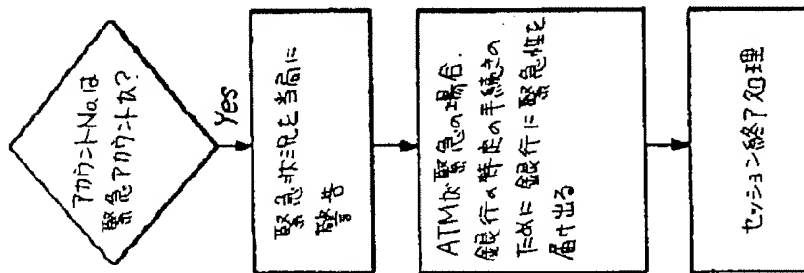 アカウントNo.は
緊急アカウントか?
Yes
緊急状況を当局に
警告
ATMが緊急の場合.
銀行の特定の手続きの
ために銀行に緊急性を
届け出る
セッション終了処理